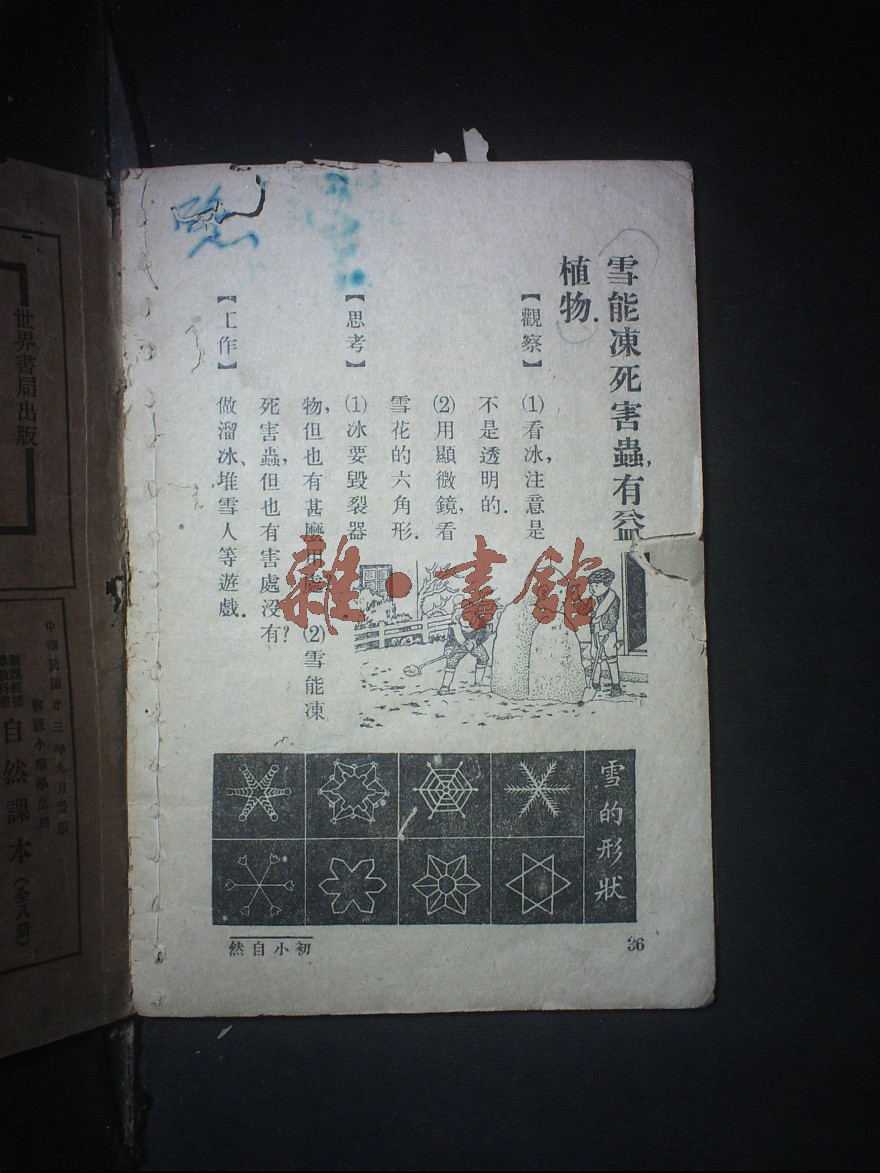 雪能凍死害蟲，有益
植物．
【觀察】 ⑴看冰，注意是
不是透明的．
⑵用顯微鏡，看
雪花的六角形．
【思考】 ⑴冰要毀裂器
物，但也有甚麼用處？⑵雪能凍
死害蟲，但也有害處沒有？
【工作】 做溜冰、堆雪人等遊戲．
雪的形狀
36
初小自然
雜·書館
世界書局出版
中華民國廿三年九月出版
初級小學學生用
自然課本（全八冊）